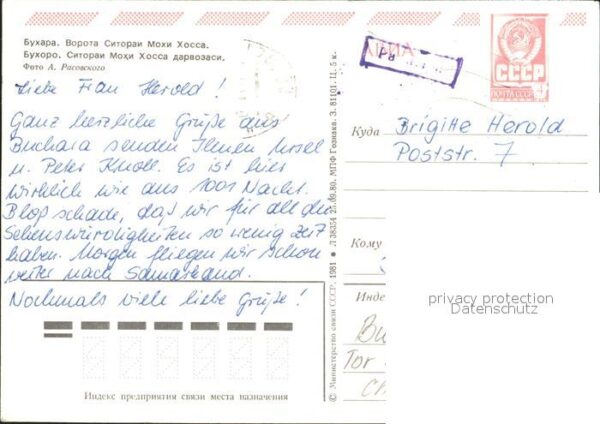 Бухара. Ворота Ситораи Мохи Хосса.
Бухоро. Ситораи Моҳи Хосса дарвозаси.
Фото А. Расовского
Liebe Frau Herold!
Ganz herzliche Grüße aus
Buchara senden Ihnen Ursel
u. Peter Knoll. Es ist hier
wirklich wie aus 1001 Nacht.
Bloß schade, daß wir für all die
Sehenswürdigkeiten so wenig Zeit
haben. Morgen fliegen wir schon
weiter nach Samarkand.
Nochmals viele liebe Grüße!
Индекс предприятия связи места назначения
© Министерство связи СССР, 1981 ● Л 38354 25.09.80. МПФ Гознака. З. 81101. Ц. 5 к.
АВИА
СССР
ПОЧТА СССР
4
Куда
Brigitte Herold
Poststr. 7
Кому
Инде
Bu
Tor
privacy protection
Datenschutz